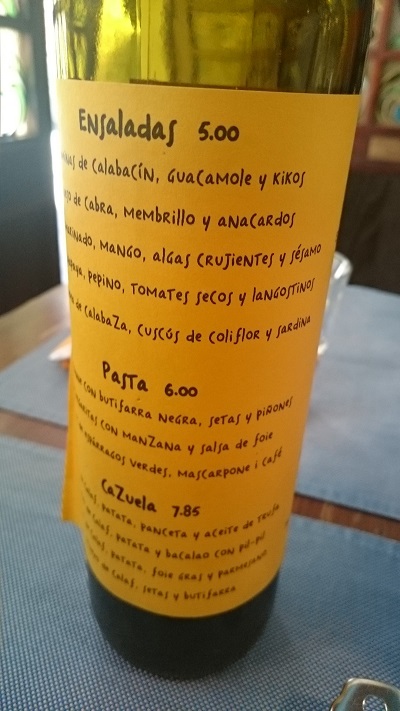 Ensaladas 5.00
de calabacín, guacamole y kikos
de cabra, membrillo y anacardos
mango, algas crujientes y sésamo
pepino, tomates secos y langostinos
de calabaza, cuscús de coliflor y sardina
Pasta 6.00
con butifarra negra, setas y piñones
con manzana y salsa de foie
espárragos verdes, mascarpone i café
Cazuela 7.85
patata, panceta y aceite de trufa
de colas, patata y bacalao con pil-pil
patata, foie gras y parmesano
de colas, setas y butifarra